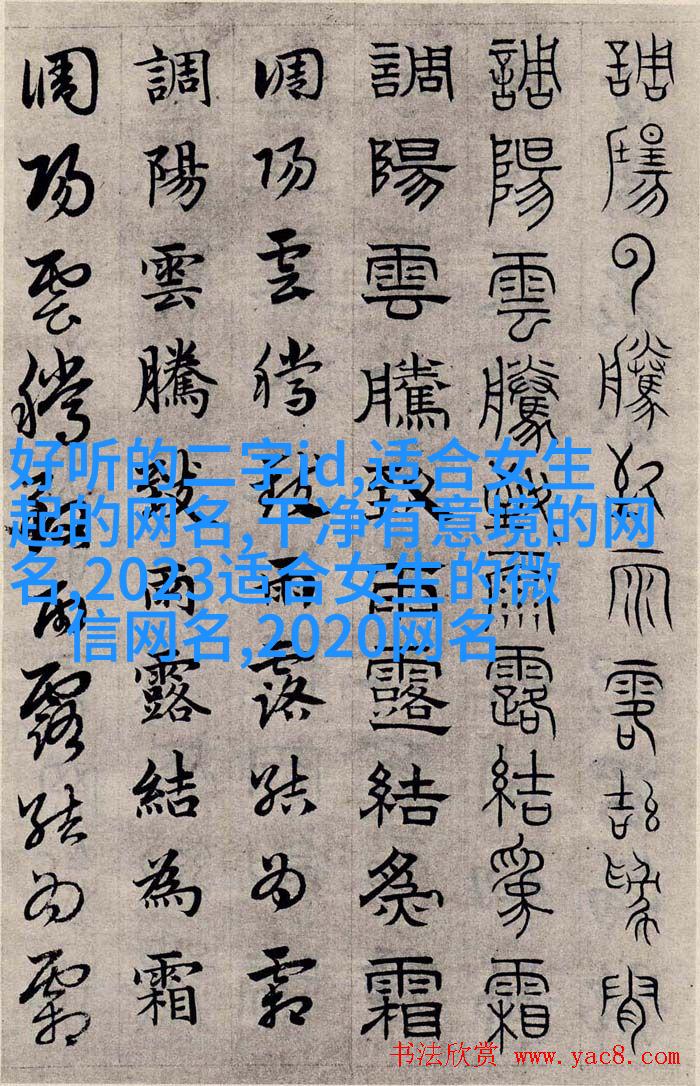 調陽雲騰致雨露結為霜
調陽雲騰致雨露結為霜
調陽雲騰致雨露結為霜
調陽雲騰致雨露結為霜
調陽雲騰致雨露結為霜
調陽雲騰致雨露結為霜
好听的二字id,适合女生
起的网名,干净有意境的网
名,2023适合女生的微
信网名,2020网名
书法欣赏 www.yac8.com